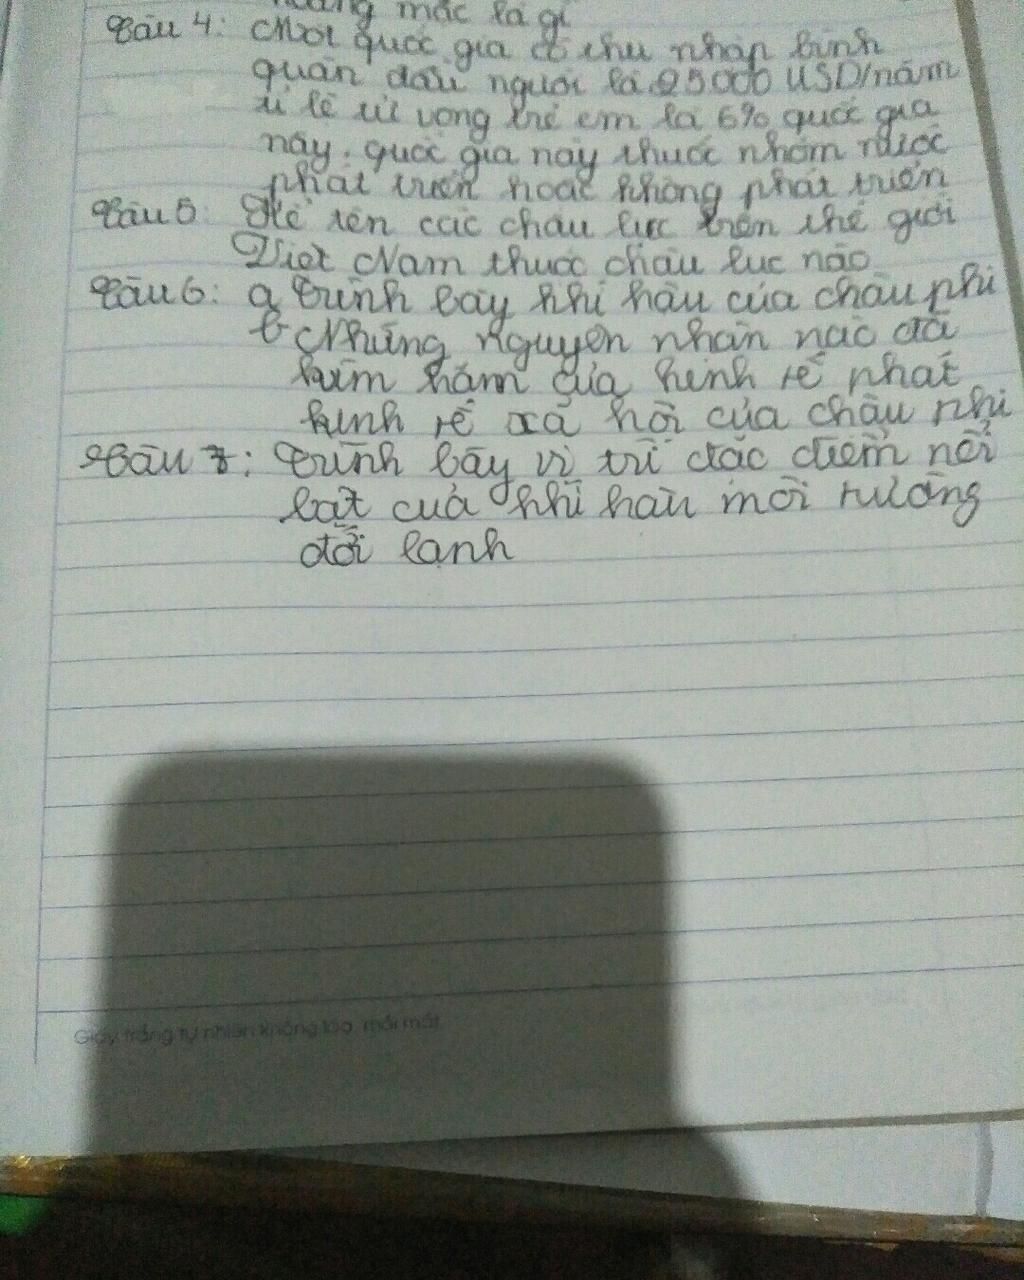 mạc là gì
Câu 4: Một quốc gia có thu nhập bình
quân đầu người là 25000 USD/năm
tỉ lệ tử vong trẻ em là 6% quốc gia
này. quốc gia này thuộc nhóm nước
phát triển hoặc không phát triển
Câu 5: Kể tên các châu lục trên thế giới
Việt Nam thuộc châu lục nào
Câu 6: a trình bày khí hậu của châu phi
b Những nguyên nhân nào đã
kìm hãm của kinh tế phát
kinh tế xã hội của châu phi
Câu 7: trình bày vị trí đặc điểm nổi
bật của khí hậu môi trường
đới lạnh
Giấy trắng tự nhiên không lóa, mỏi mắt